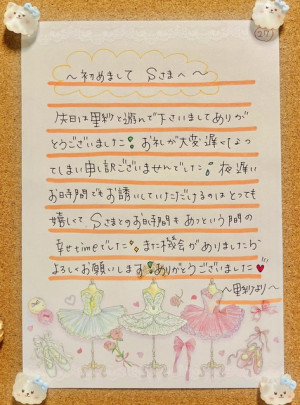 (27)
～初めまして Sさまへ～
先日は里紗と遊んで下さいましてありが
とうございました！お礼が大変遅くなっ
てしまい申し訳ございませんでした！夜遅い
お時間でもお誘いしていただけるのはとても
嬉しくて Sさまとのお時間もあっという間の
幸せtimeでした！また機会がありましたら
よろしくお願いします！ありがとうございました
～里紗より～